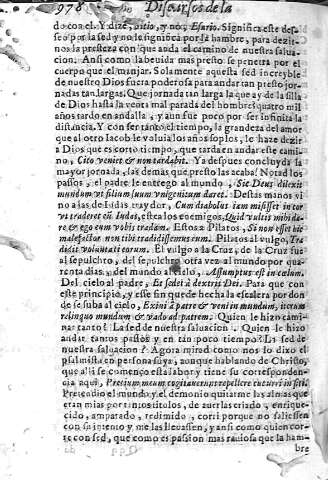 978 Discursos de la
do con el. Y dize, sitio, y no, Esurio. Significa este des-
seo por la sed y no le significa por la hambre, para dezir-
nos la presteza con que anda el camino de nuestra salua-
cion. Ansi como la beuida mas presto se penetra por el
cuerpo que el manjar. Solamente aquesta sed increyble
de nuestro Dios fuera poderosa para andar tan presto jor-
nadas tan largas. Que jornada tan larga la que ay de la silla
de Dios hasta la venta mal parada del hombre? quatro mil
años tardo en andalla, y aun fue poco por ser infinita la
distancia. Y con ser tanto el tiempo, la grandeza del amor
que al otro Iacob le valuia los años soplos, le haze dezir
a Dios que es corto tiempo, que tarda en andar este cami-
no, Cito veniet & non tardabit. Ya despues concluyda la
mayor jornada, las demas que presto las acaba? Notad los
passos, el padre le entrego al mundo, Sic Deus dilexit
mundum vt filium suum vnigenitum daret. Destas manos vi
no a las de Iudas traydor, Cum diabolus iam misisset in cor
vt traderet eum Iudas, este a los enemigos, Quid vultis mihi da-
re & ego eum vobis tradam. Estos a Pilatos, Si non esset hic
malefactor non tibi tradidissemus eum. Pilatos al vulgo, Tra
didit voluntati eorum. El vulgo a la Cruz, de la Cruz fue
al sepulchro, del sepulchro otra vez al mundo por qua-
renta dias, y del mundo al cielo, Assumptus est in cælum.
Del cielo al padre, Et sedet à dextris Dei. Para que con
este principio, y esse fin quede hecha la escalera por don
de se suba al cielo, Exiui à patre & veni in mundum, iterum
relinquo mundum & vado ad patrem. Quien le hizo cami-
nar tanto? La sed de nuestra saluacion. Quien le hizo
andar tantos passos y en tan poco tiempo? La sed de
nuestra saluacion? Agora mirad como nos lo dixo el
psalmista en persona suya, aunque hablando de Christo,
que alli se començo esta labor y tiene su correspondencia
aqui, Precium meum cogitauerunt repellere cucurri in siti.
Pretendio el mundo y el demonio quitarme las almas que
eran mias por tantos titulos, de auerlas criado, enrique-
cido, amparado, redimido, corri porque no saliessen
con su intento y me las lleuassen, y ansi como quien cor-
re con sed, que como es passion mas rauiosa que la ham-
bre